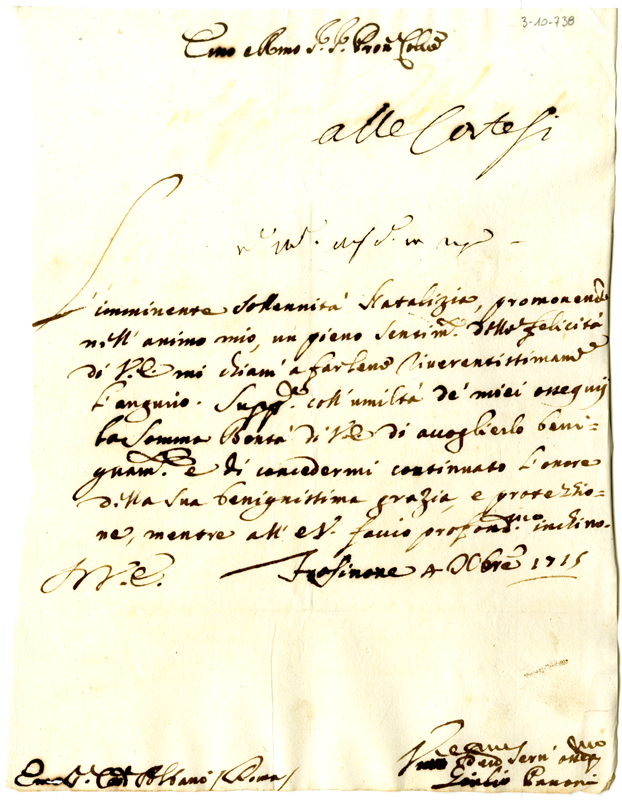 3-10-738
Emo e Rmo Sr. Pron Colmo
alle Cortesi
L'imminente Sollennità Natalizia, promonendo
nell'animo mio, un pieno Sentimto. della felicità
di V.E. mi chiam'a farlene riverentissimame
l'augurio. Suppco. coll'umiltà de' miei ossequij
la Somma Bontà di V.E. di accoglierlo beni=
gnamte. e di concedermi continuato l'onore
della Sua benignissima grazia, e protezzio=
ne, mentre all'E.V. faccio profondmo. inchino.
Di V.E. Frosinone 4 Xbre 1715
Em. Sr. Card Albani (Roma)
Giulio